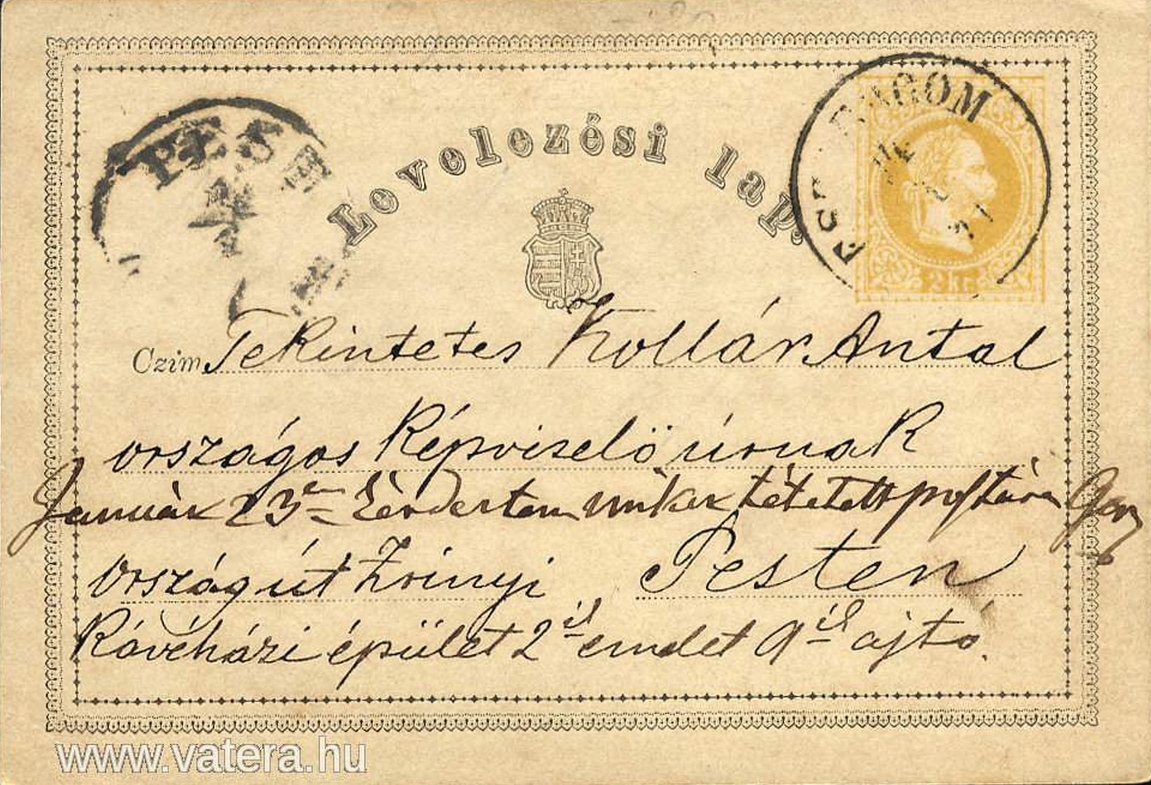 Levelezési lap.
PEST
ESZTERGOM
2 kr
Czim Tekintetes Kollár Antal
országos Képviselő úrnak
Január 23án kézdettem mikor tétetett postára
országút Zrinyi Pesten
Kávéházi épület 2ik emelet 9ik ajtó.
www.vatera.hu